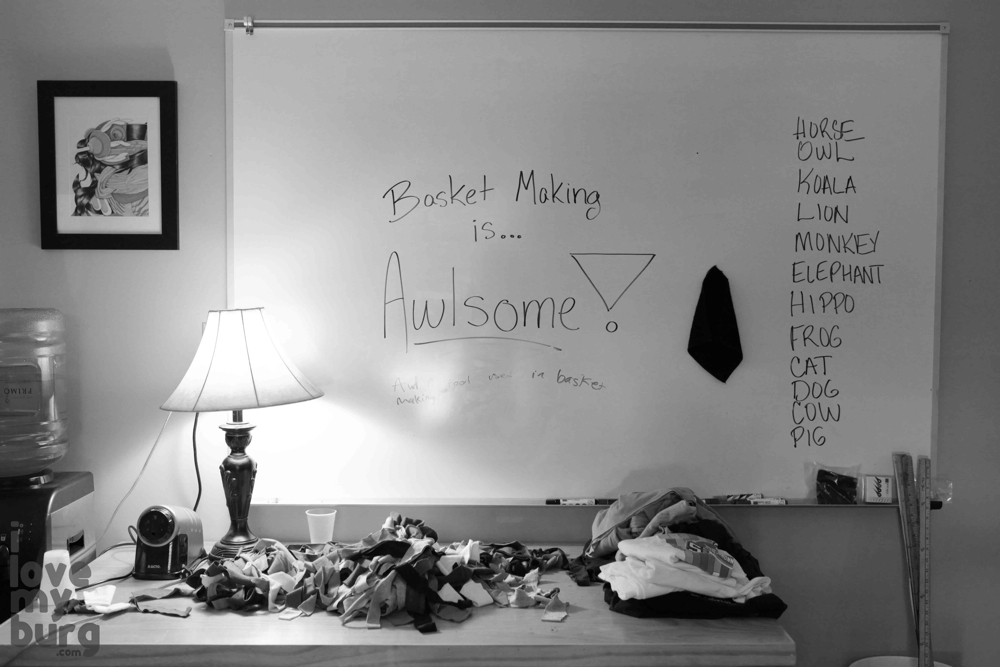 Basket Making
is...
Awlsome!
in basket
making
HORSE
OWL
KOALA
LION
MONKEY
ELEPHANT
HIPPO
FROG
CAT
DOG
COW
PIG
i
love
my
burg
.com